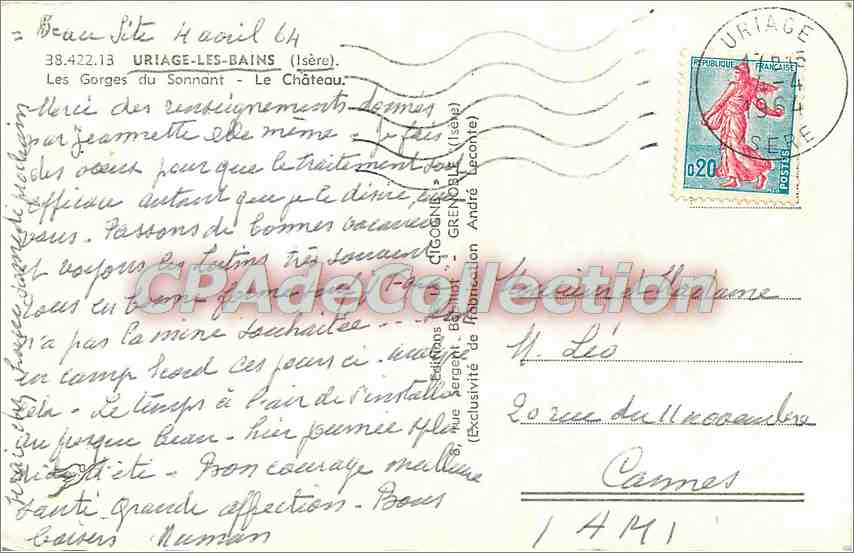 = Beau Site 4 avril 64
38.422.13 URIAGE-LES-BAINS (Isère).
Les Gorges du Sonnant - Le Château.
Merci des renseignements donnés
par Jeannette elle même - Je fais
des vœux pour que le traitement soit
efficace autant que je le désire
vous - Passons de bonnes vacances
et voyons les très souvent
tous en bonne forme
n'a pas la mine souhaitée ...
un camp ces jours ci - malgré
cela - Le temps à l'air de s'installer
au presque beau - hier journée
d'été - Bon courage meilleure
santé grande affection - Bons
baisers Maman
samedi prochain
Editions "CIGOGNE"
8, rue Sergent Bobillot - GRENOBLE (Isère)
(Exclusivité de Fabrication André Leconte)
URIAGE
4-4
1964
ISERE
REPUBLIQUE FRANÇAISE
0,20
POSTES
CPAdeCollection
Monsieur et Madame
M. Léo
20 rue du 11 novembre
Cannes
(AM)